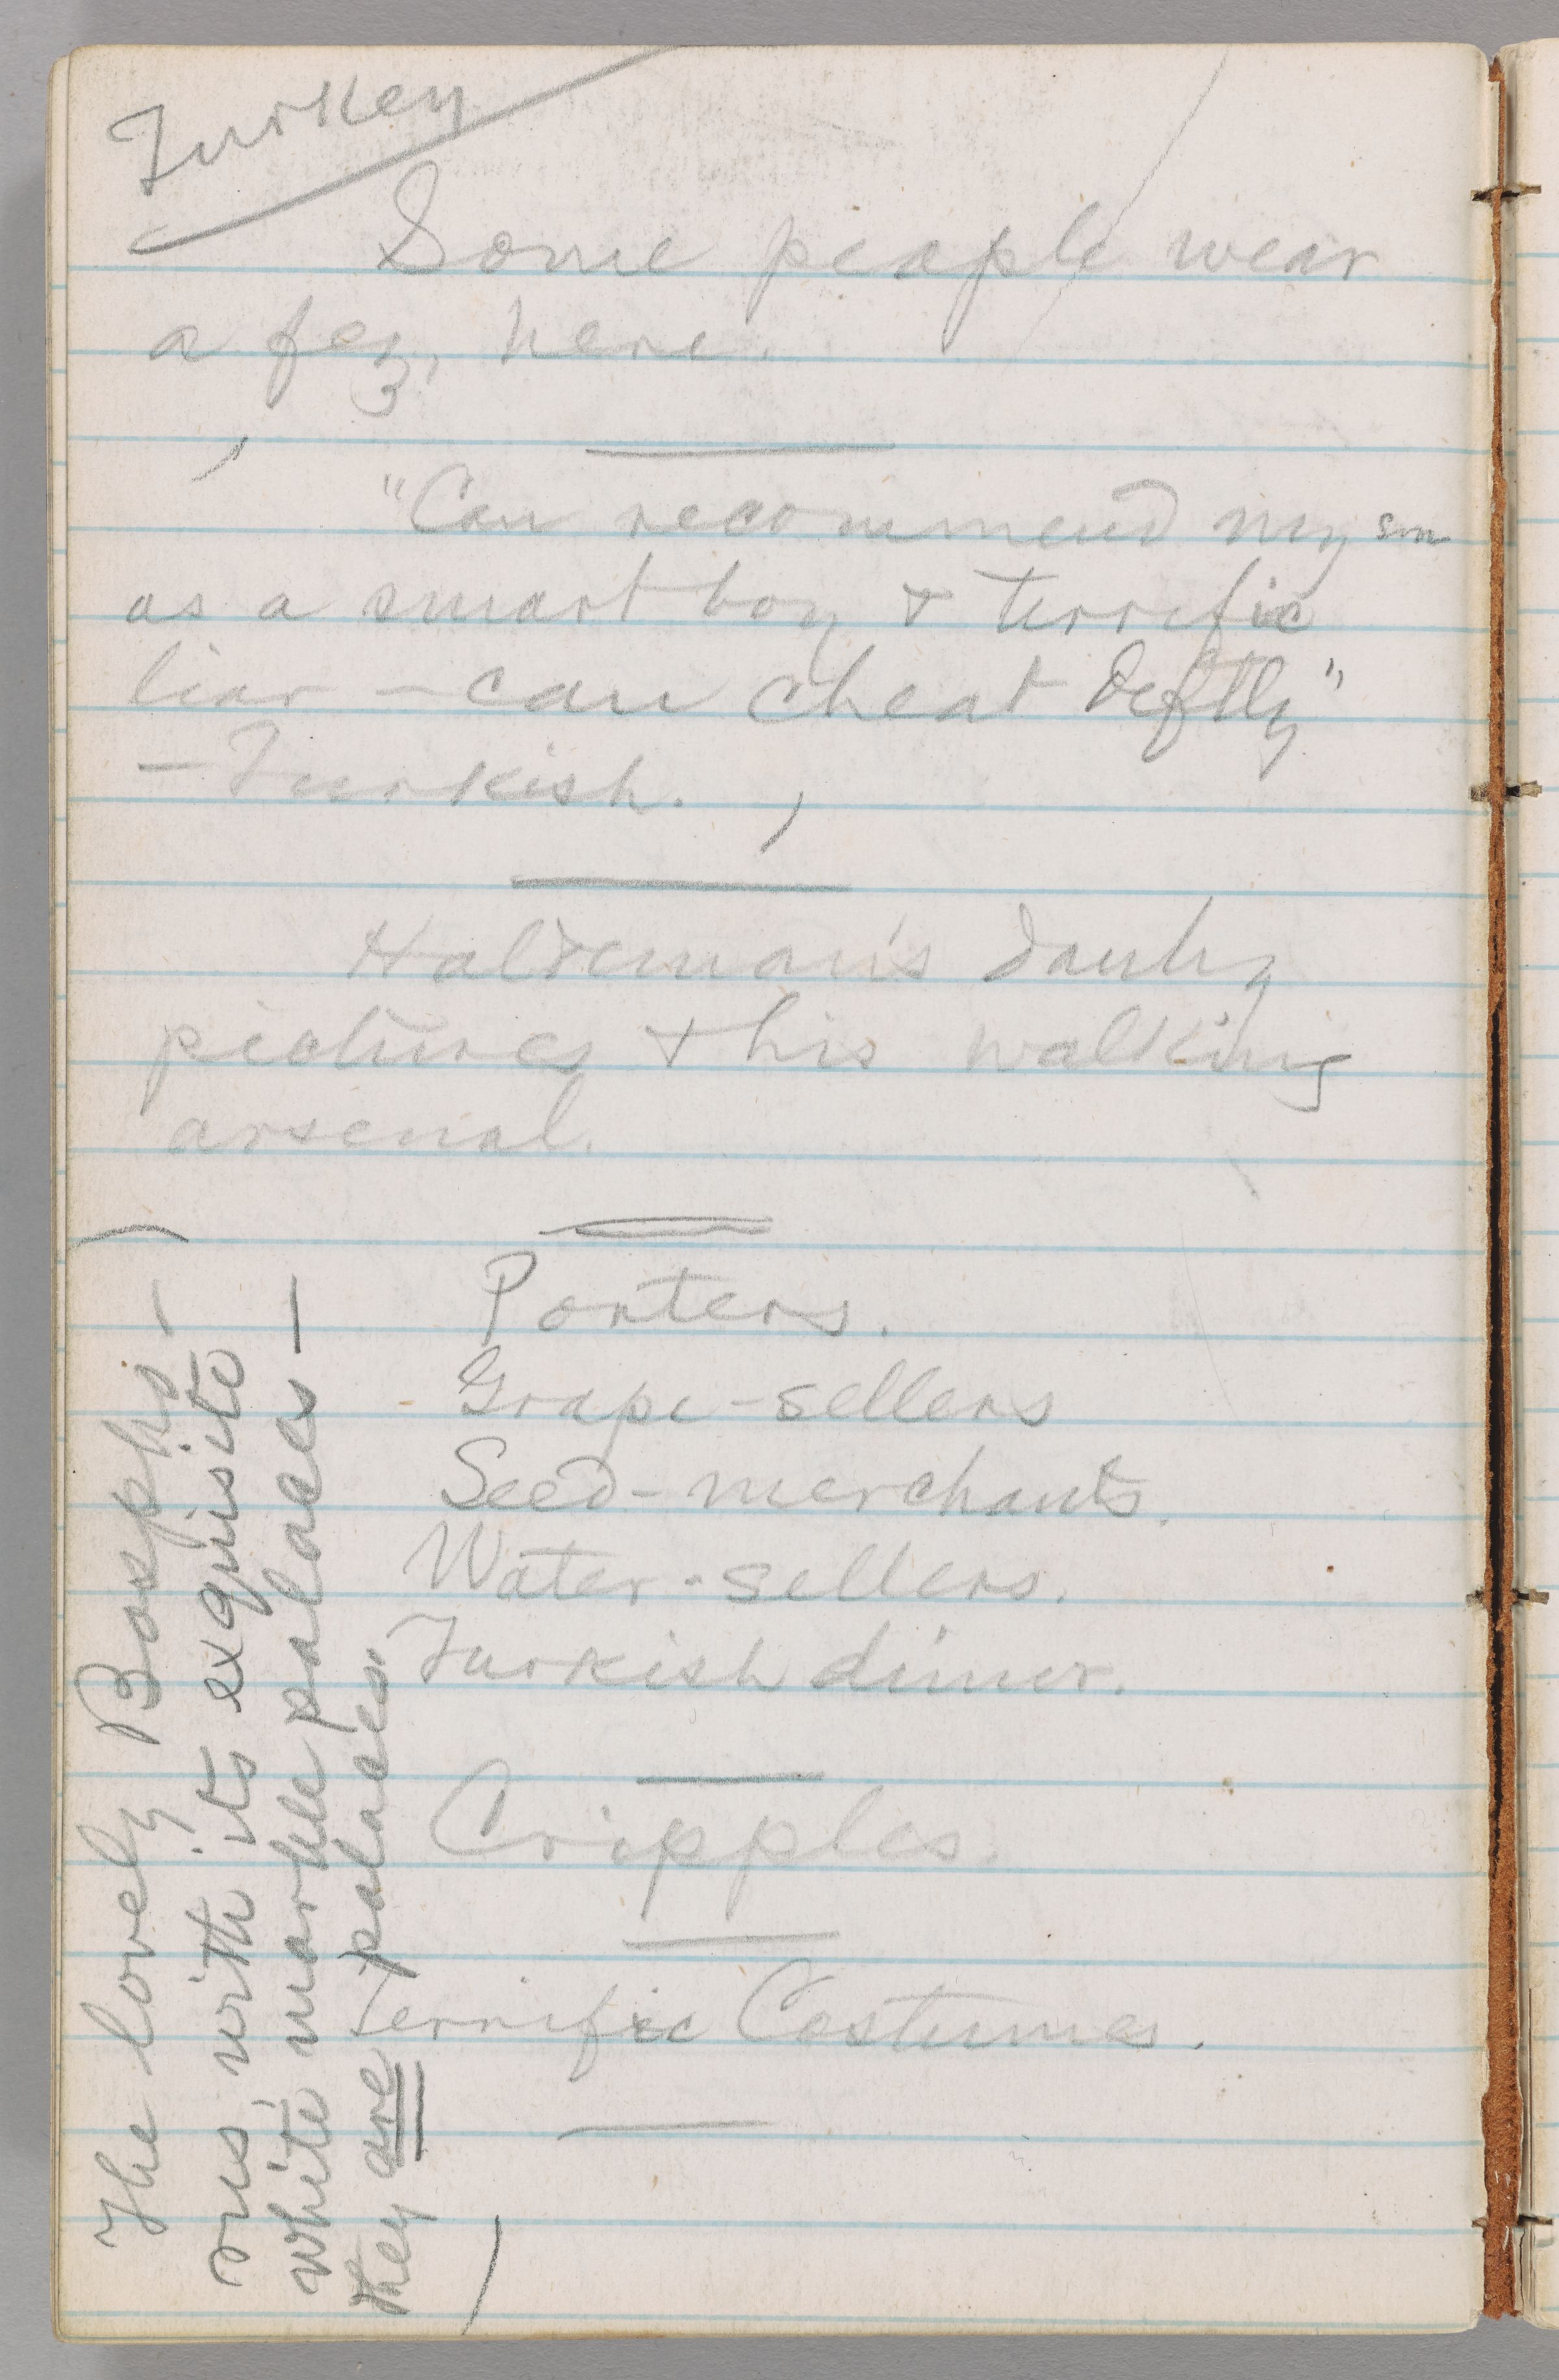 Turkey
Some people wear
a fez, here.
"Can recommend my son
as a smart boy & terrific
liar – can cheat deftly"
– Turkish.
Haldeman's dauby
pictures & his walking
arsenal.
Porters.
Grape-sellers
Seed-merchants.
Water-sellers.
Turkish dinner.
Cripples.
Terrific Costumes.
The lovely Bospho-
rus, with its exquisite
white marble palaces –
they are palaces.